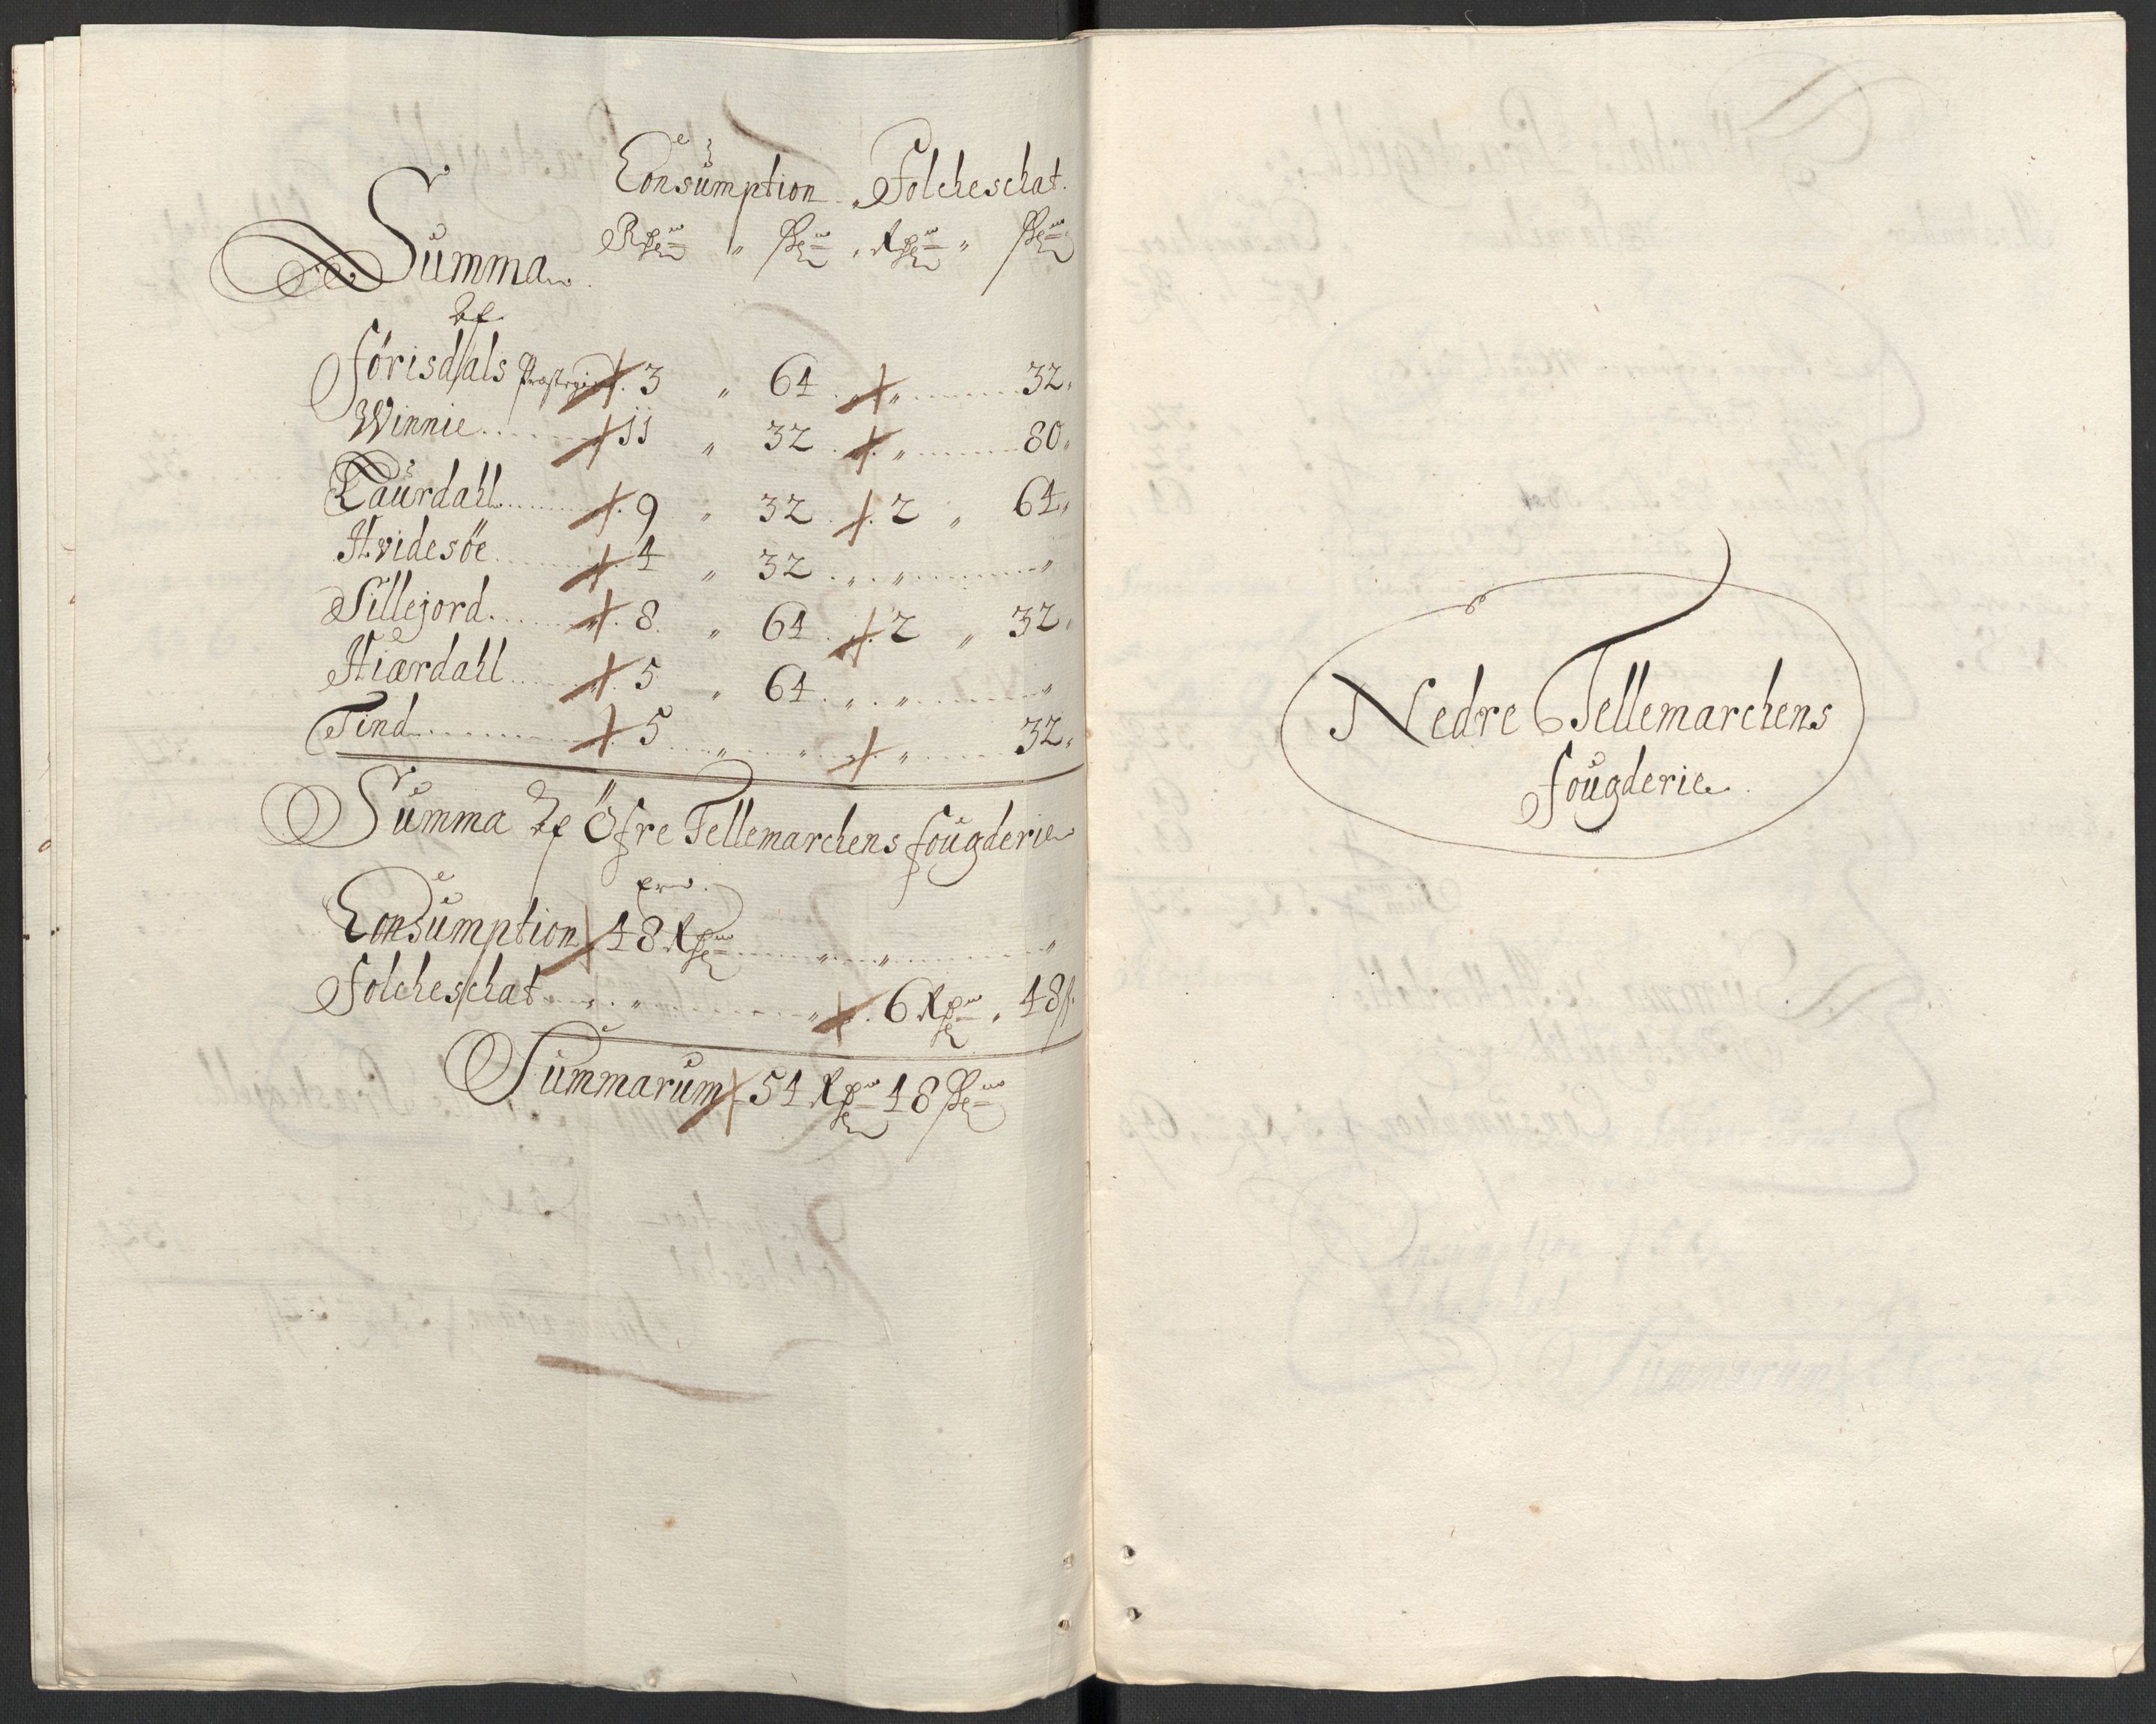 Consumption „ Folcheschat.
Summa
af
Førisdals Præstegield. 3 „ 64 „ „ 32„
Winnie 11 „ 32 „ 80„
Laurdahl 9 „ 32 2 „ 64„
Hvidesöe 4 „ 32 „ „ „
Sillejord 8 „ 64 2 „ 32„
Hiærdahl 5 „ 64 „ „ „
Tind 5 „ „ „ 32„
Summa af Öfre Tellemarchens fougderie
Consumption 48 Rdr „ „ „
Folcheschat „ „ „ 6 Rdr „ 48 s
Summarum 54 Rdr 48 s
Nedre Tellemarchens
fougderie